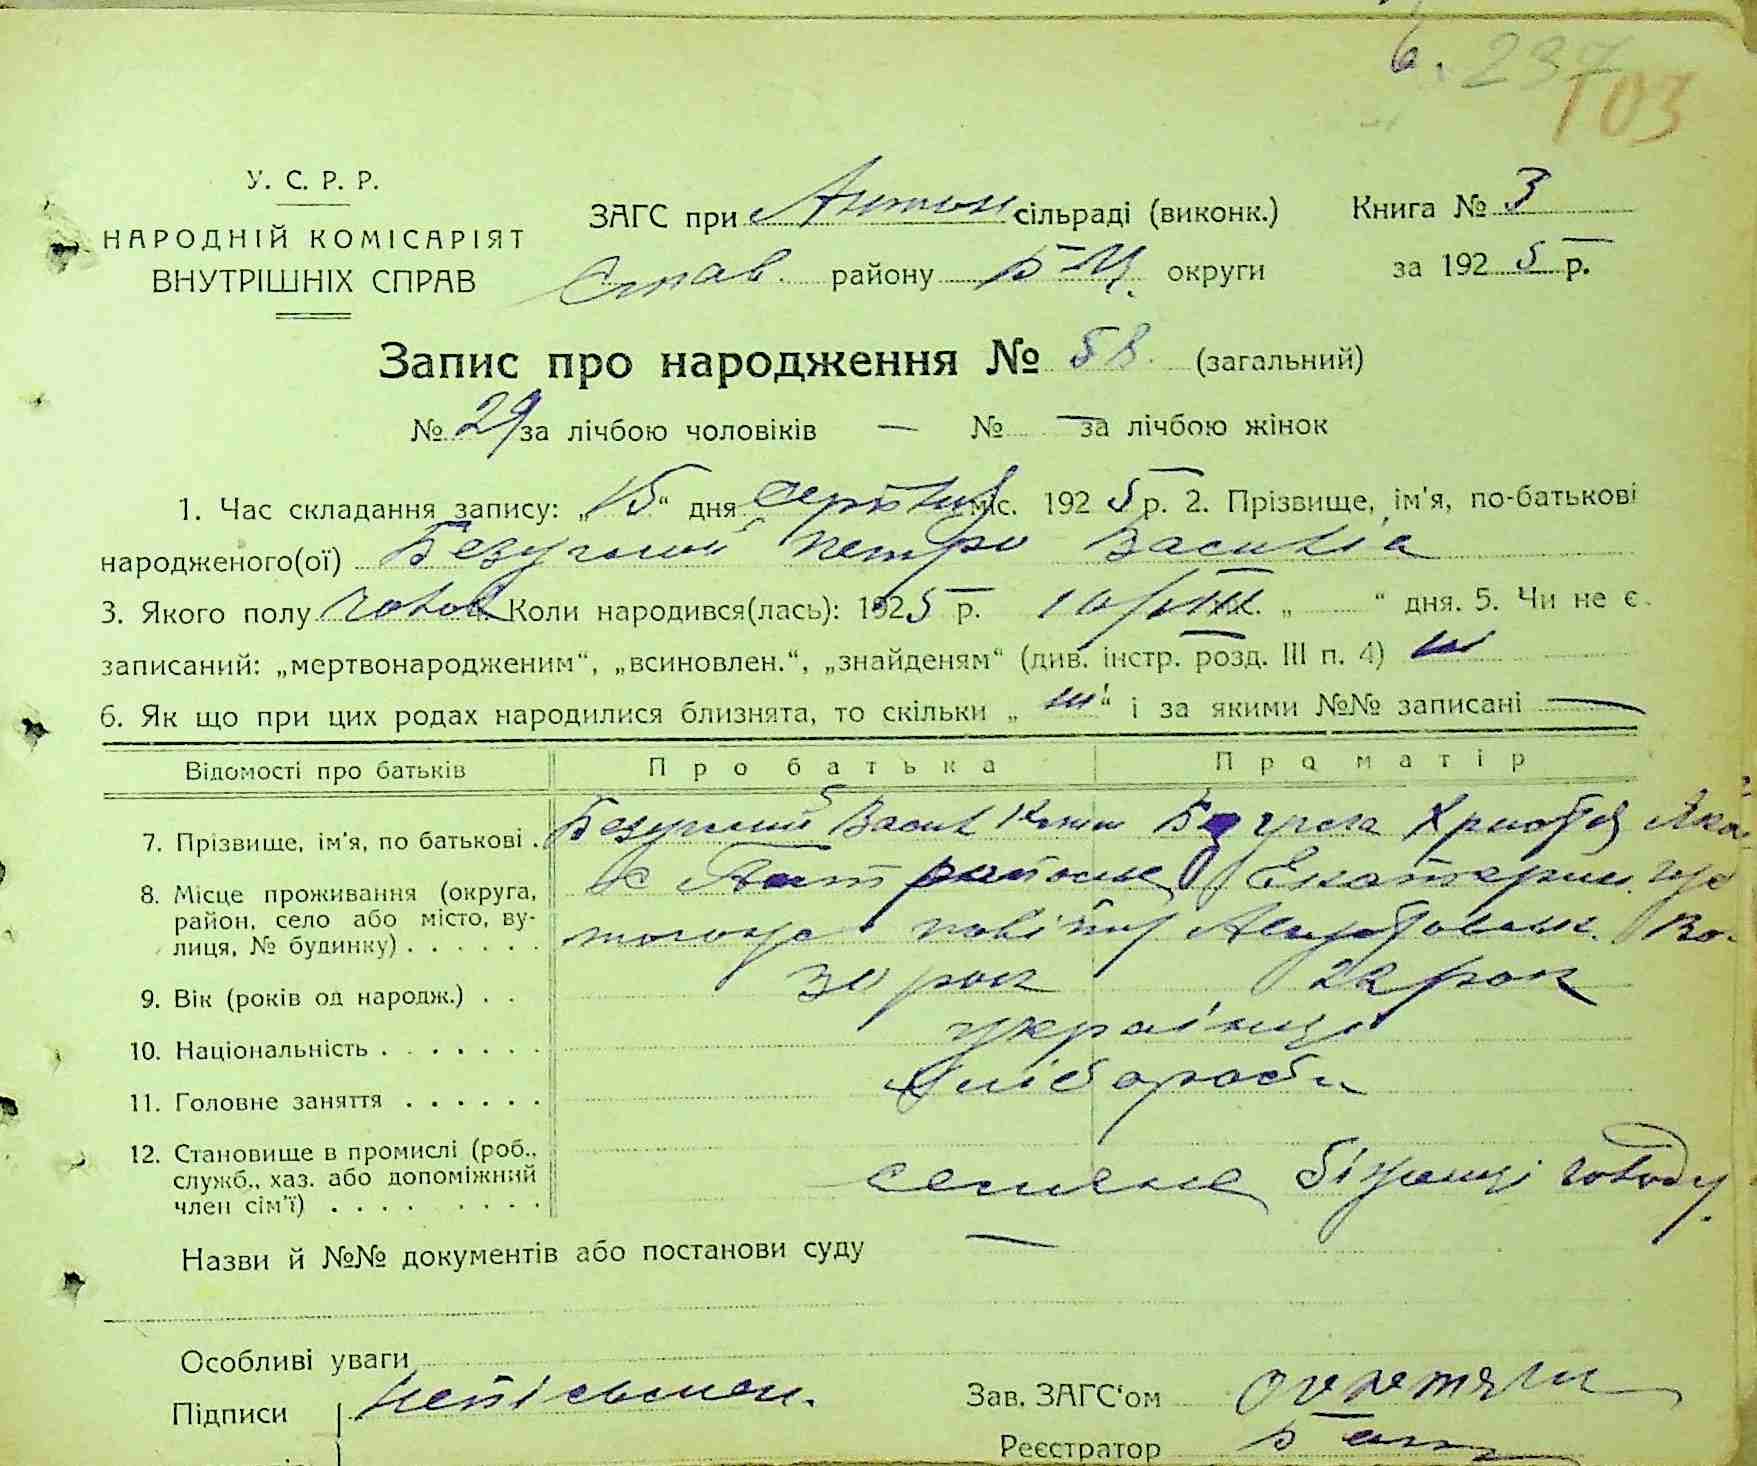 6. 237
103
У. С. Р. Р.
НАРОДНІЙ КОМІСАРІЯТ
ВНУТРІШНІХ СПРАВ
ЗАГС при Антон сільраді (виконк.)
Став. району Б-Ц. округи
Книга № 3
за 1925 р.
Запис про народження № 58. (загальний)
№ 29 за лічбою чоловіків — № — за лічбою жінок
1. Час складання запису: „15“ дня серпня міс. 1925 р. 2. Прізвище, ім'я, по-батькові
народженого(ої) Безуглий Петро Василів
3. Якого полу чолов. Коли народився(лась): 1925 р. 10/VIII „ “ дня. 5. Чи не є
записаний: „мертвонародженим“, „всиновлен.“, „знайденям“ (див. інстр. розд. III п. 4) ні
6. Як що при цих родах народилися близнята, то скільки „ні“ і за якими №№ записані —
Відомості про батьків Про батька Про матір
7. Прізвище, ім'я, по батькові . Безуглий Васил
8. Місце проживання (округа,
район, село або місто, вулиця, № будинку) . . . . . . повіту
9. Вік (років од народж.) . . 30 рок 22 рок
10. Національність . . . . . . . українці
11. Головне заняття . . . . . . Хлібороби
12. Становище в промислі (роб.,
служб., хаз. або допоміжний
член сім'ї) . . . . . . . . . селяне біженці голоду.
Назви й №№ документів або постанови суду —
Особливі уваги
Підписи неписьмен.
Зав. ЗАГС'ом
Реєстратор